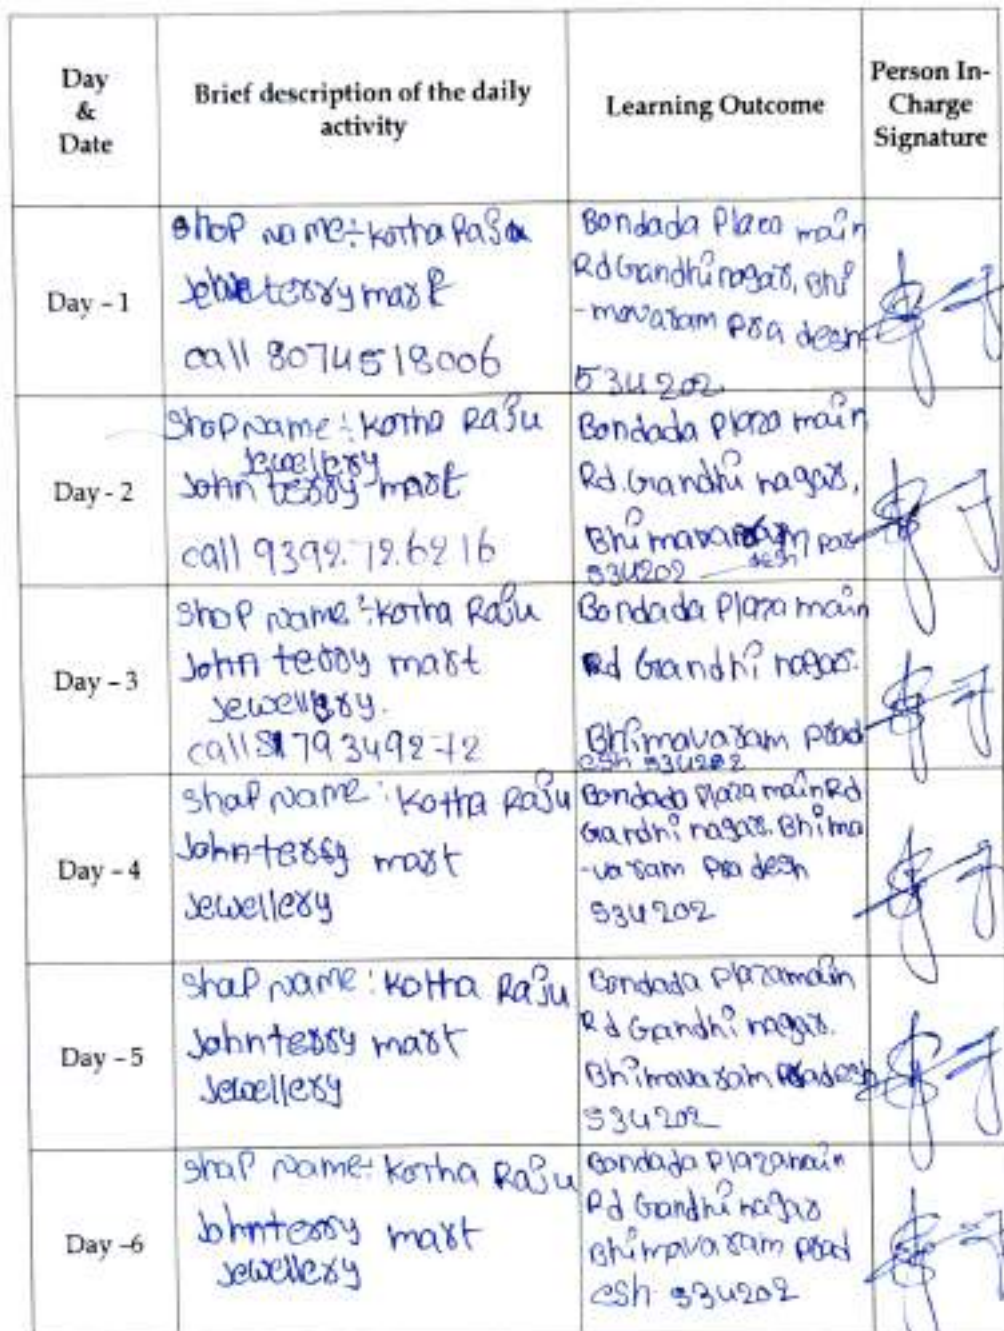 Day
&
Date
Brief description of the daily
activity
Learning Outcome
Person In-
Charge
Signature
Day - 1
Shop Name:- Kotha Raju
terry mart
call 8074518006
Bondada Plaza main
Rd Gandhi nagar, Bhi
-mavaram Pradesh
534202
Day - 2
Shop Name :- Kotha Raju
Jewellery
John terry mart
call 9392726216
Bondada Plaza main
Rd. Gandhi nagar,
Bhimavaram
desh
534202
Day - 3
Shop Name :- Kotha Raju
John terry mart
Jewellery.
call
Bondada Plaza main
Rd Gandhi nagar.
Bhimavaram Prad
esh 534202
Day - 4
Shop Name : Kotha Raju
John terry mart
Jewellery
Bondada Plaza main Rd
Gandhi nagar. Bhima
-varam Pradesh
534202
Day - 5
Shop Name : Kotha Raju
John terry mart
Jewellery
Bondada Plaza main
Rd Gandhi nagar.
Bhimavaram Pradesh
534202
Day -6
Shop Name:- Kotha Raju
John terry mart
Jewellery
Bondada Plaza main
Rd Gandhi nagar
Bhimavaram Prad
esh 534202